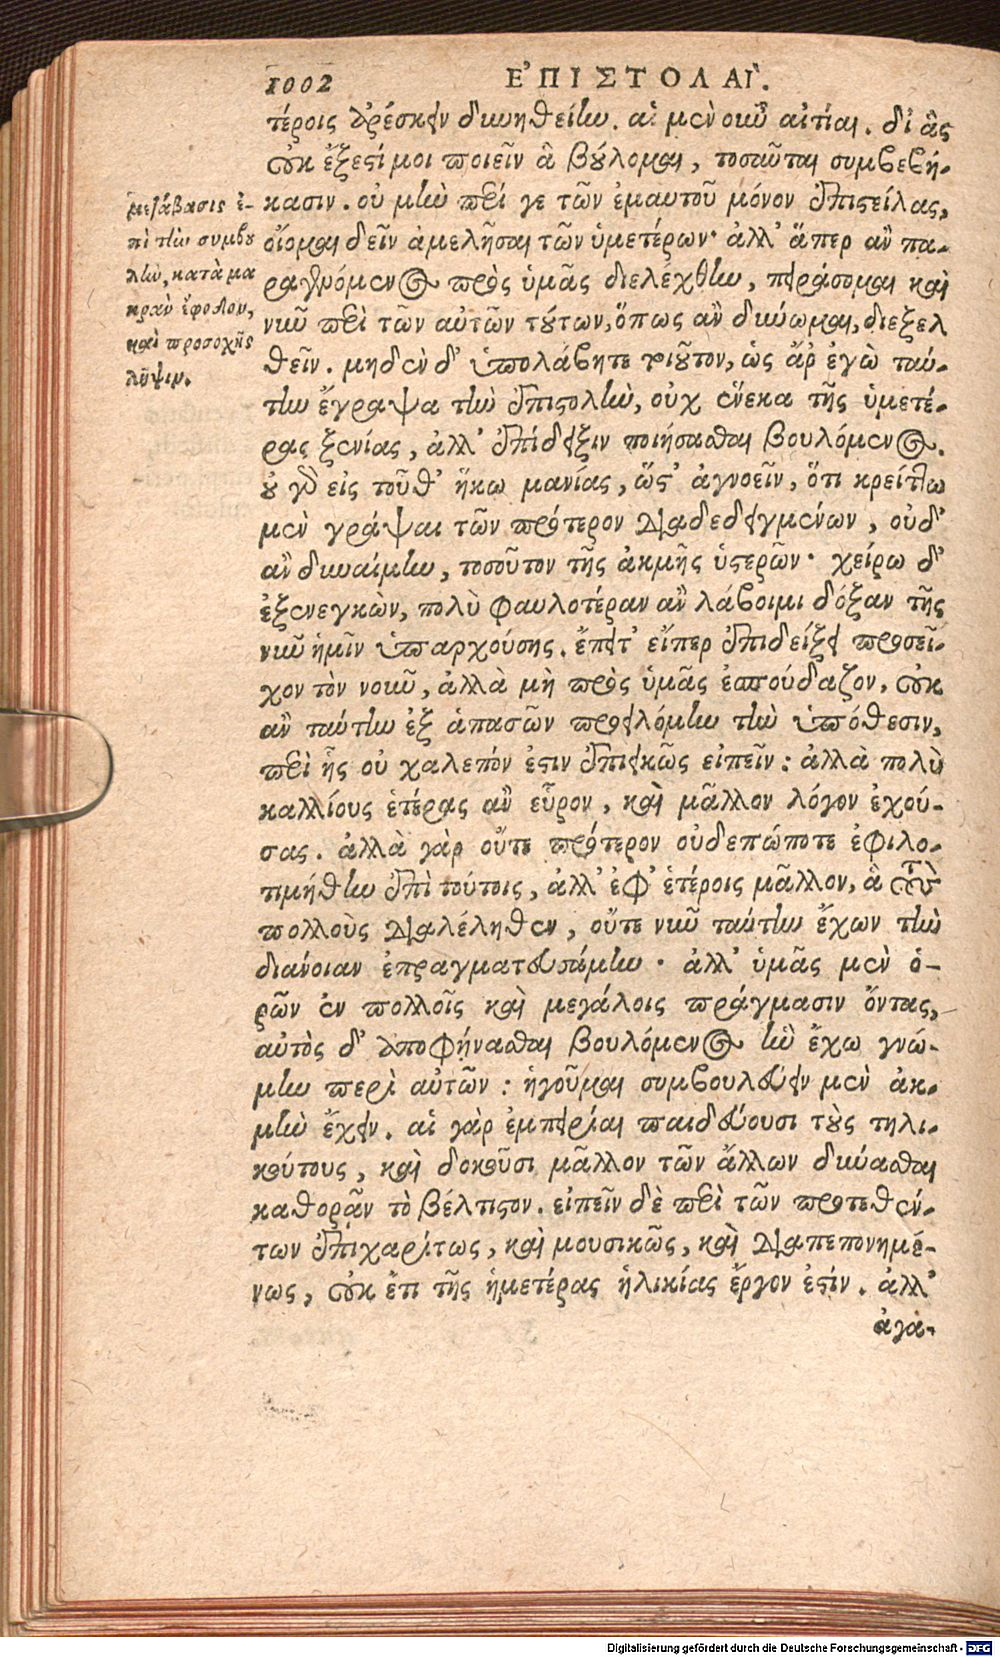 1002 ἘΠΙΣΤΟΛΑΊ.
τέροις ἀρέσκειν δυνηθείην. αἱ μὲν οὖν αἰτίαι, δι' ἃς
οὐκ ἔξεστί μοι ποιεῖν ἃ βούλομαι, τοσαῦται συμβεβή-
κασιν. οὐ μὴν περί γε τῶν ἐμαυτοῦ μόνον ἐπιστείλας,
οἴομαι δεῖν ἀμελῆσαι τῶν ὑμετέρων· ἀλλ' ἅπερ ἂν πα-
ραγενόμενος πρὸς ὑμᾶς διελέχθην, πειράσομαι καὶ
νῦν περὶ τῶν αὐτῶν τούτων, ὅπως ἂν δύνωμαι, διεξελ
θεῖν. μηδὲν δ' ὑπολάβητε τοιοῦτον, ὡς ἄρ' ἐγὼ ταύ-
την ἔγραψα τὴν ἐπιστολὴν, οὐχ ἕνεκα τῆς ὑμετέ-
ρας ξενίας, ἀλλ' ἐπίδειξιν ποιήσασθαι βουλόμενος.
οὐ γὰρ εἰς τοῦθ' ἥκω μανίας, ὥστ' ἀγνοεῖν, ὅτι κρείττω
μὲν γράψαι τῶν πρότερον διαδεδειγμένων, οὐδ'
ἂν δυναίμην, τοσοῦτον τῆς ἀκμῆς ὑστερῶν· χείρω δ'
ἐξενεγκὼν, πολὺ φαυλοτέραν ἂν λάβοιμι δόξαν τῆς
νῦν ἡμῖν ὑπαρχούσης. ἔπειτ' εἴπερ ἐπιδείξει προσεῖ-
χον τὸν νοῦν, ἀλλὰ μὴ πρὸς ὑμᾶς ἐσπούδαζον, οὐκ
ἂν ταύτην ἐξ ἁπασῶν προειλόμην τὴν ὑπόθεσιν,
περὶ ἧς οὐ χαλεπόν ἐστιν ἐπιεικῶς εἰπεῖν: ἀλλὰ πολὺ
καλλίους ἑτέρας ἂν εὗρον, καὶ μᾶλλον λόγον ἐχού-
σας. ἀλλὰ γὰρ οὔτε πρότερον οὐδεπώποτε ἐφιλο-
τιμήθην ἐπὶ τούτοις, ἀλλ' ἐφ' ἑτέροις μᾶλλον, ἃ τοὺς
πολλοὺς διαλέληθεν, οὔτε νῦν ταύτην ἔχων τὴν
διάνοιαν ἐπραγματευσάμην· ἀλλ' ὑμᾶς μὲν ὁ-
ρῶν ἐν πολλοῖς καὶ μεγάλοις πράγμασιν ὄντας,
αὐτὸς δ' ἀποφήνασθαι βουλόμενος ἣν ἔχω γνώ-
μην περὶ αὐτῶν: ἡγοῦμαι συμβουλεύειν μὲν ἀκ-
μὴν ἔχειν. αἱ γὰρ ἐμπειρίαι παιδεύουσι τοὺς τηλι-
κούτους, καὶ δοκοῦσι μᾶλλον τῶν ἄλλων δύνασθαι
καθορᾷν τὸ βέλτιστον. εἰπεῖν δὲ περὶ τῶν προτεθέν-
των ἐπιχαρίτως, καὶ μουσικῶς, καὶ διαπεπονημέ-
νως, οὐκ ἔτι τῆς ἡμετέρας ἡλικίας ἔργον ἐστίν. ἀλλ'
ἀγα-
μετάβασις ἐ-
πὶ τὴν συμβου
λὴν, κατὰ μα
κρὰν ἔφοδον,
καὶ προσοχῆς
λῆψιν.
Digitalisierung gefördert durch die Deutsche Forschungsgemeinschaft - DFG